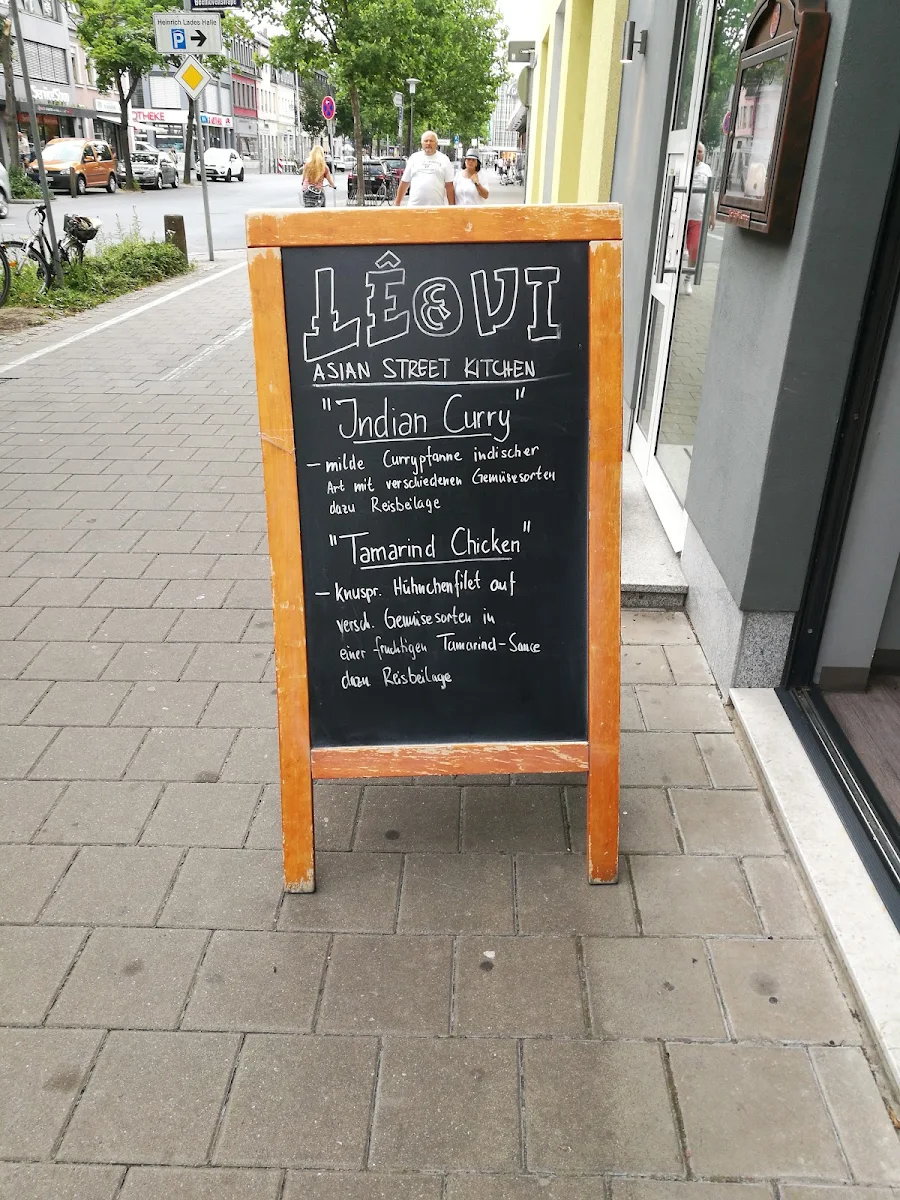 Heinrich Lades Halle
P
OTHEKE
LÊ&VI
ASIAN STREET KITCHEN
"Indian Curry"
- milde Currypfanne indischer
Art mit verschiedenen Gemüsesorten
dazu Reisbeilage
"Tamarind Chicken"
- knuspr. Hühnchenfilet auf
versch. Gemüsesorten in
einer fruchtigen Tamarind-Sauce
dazu Reisbeilage